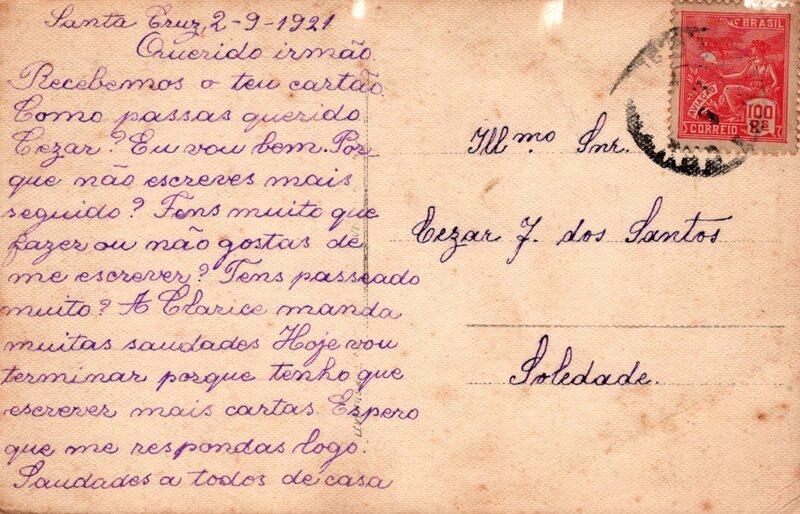 Santa Cruz, 2-9-1921
Querido irmão.
Recebemos o teu cartão.
Como passas querido
Cezar? Eu vou bem. Por
que não escreves mais
seguido? Tens muito que
fazer ou não gostas de
me escrever? Tens passeado
muito? A Clarice manda
muitas saudades Hoje vou
terminar porque tenho que
escrever mais cartas Espero
que me respondas logo.
Saudades a todos de casa
BRASIL
AVIAÇÃO
100 Rs
CORREIO
Ill.mo Snr.
Cezar J. dos Santos
Soledade.